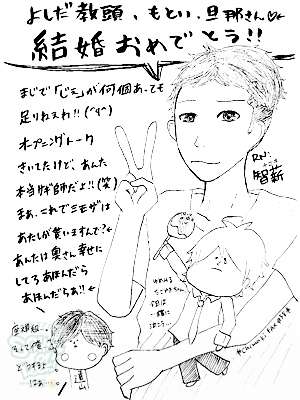 よしだ教頭、もとい、旦那さん♡
結婚おめでとう!!
まじで「じぇ」が何個あっても
足りねぇわ!!(^q^)
オープニングトーク
きいてたけど、あんた
本当サギ師だよ!!(笑)
まぁ、これでミモザは
あたしが貰いますんで?
あんたは奥さん幸せに
してろあほんだら
あほんだらぁ!!
RN:
智新
今回は
一緒に